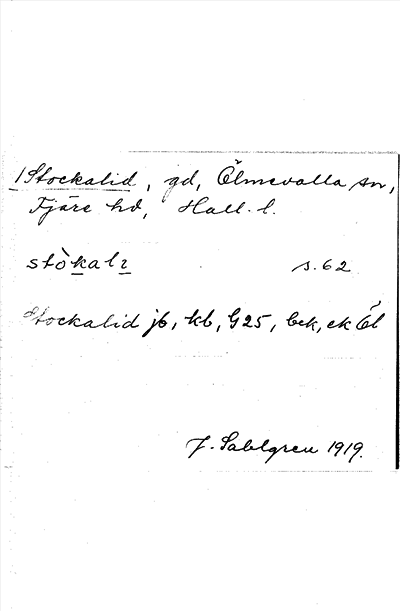 1 Stockalid, gd, Ölmevalla sn,
Fjäre hd, Hall. l.
stòkalɪ s. 62
Stockalid jb, kb, G25, bek, ek Öl
J. Sahlgren 1919.